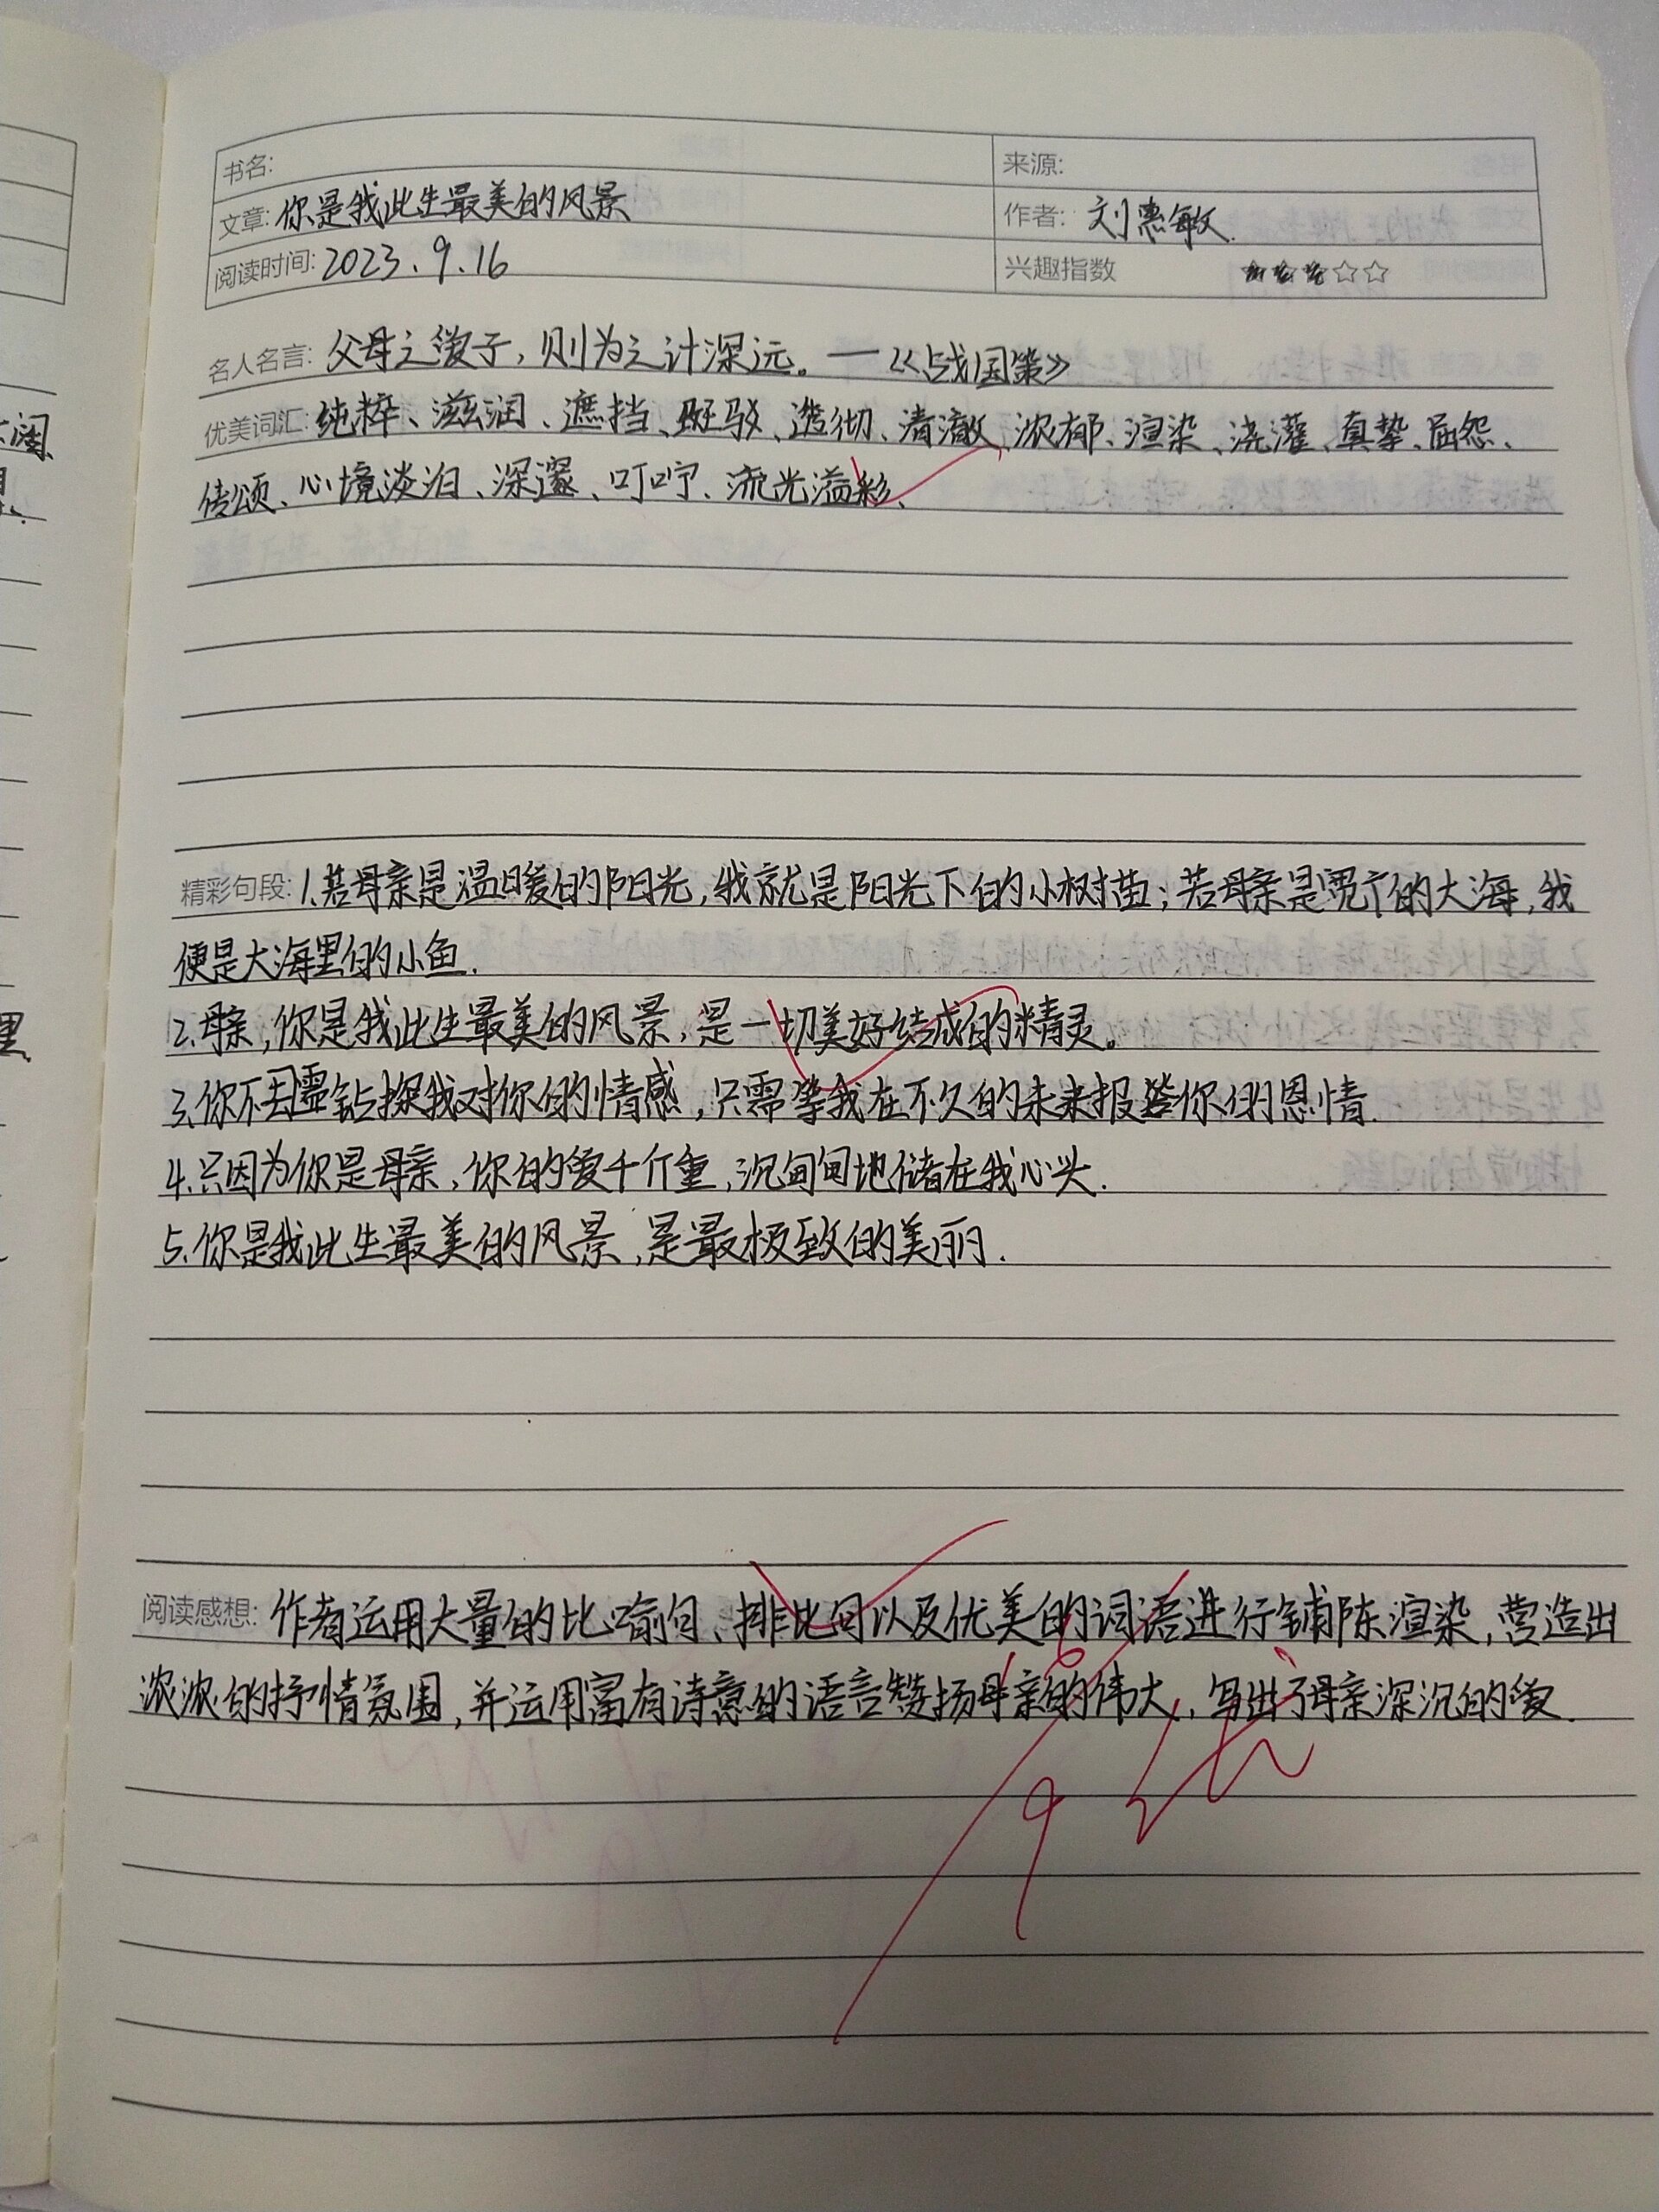 书名:
来源:
文章: 你是我此生最美的风景
作者: 刘惠敏.
阅读时间: 2023.9.16
兴趣指数 ★★★☆☆
名人名言: 父母之爱子,则为之计深远。—《战国策》
优美词汇: 纯粹、滋润、遮挡、斑驳、透彻、清澈、浓郁、渲染、浇灌、真挚、屈怨、
传颂、心境淡泊、深邃、叮咛、流光溢彩、
精彩句段: 1.若母亲是温暖的阳光,我就是阳光下的小树苗;若母亲是宽广的大海,我
便是大海里的小鱼.
2.母亲,你是我此生最美的风景,是一切美好结成的精灵。
3.你不需钻探我对你的情感,只需等我在不久的未来报答你的恩情.
4.只因为你是母亲,你的爱千斤重,沉甸甸地储在我心头.
5.你是我此生最美的风景,是最极致的美丽.
阅读感想: 作者运用大量的比喻句、排比句以及优美的词语进行铺陈渲染,营造出
浓浓的抒情氛围,并运用富有诗意的语言赞扬母亲的伟大,写出了母亲深沉的爱.
优